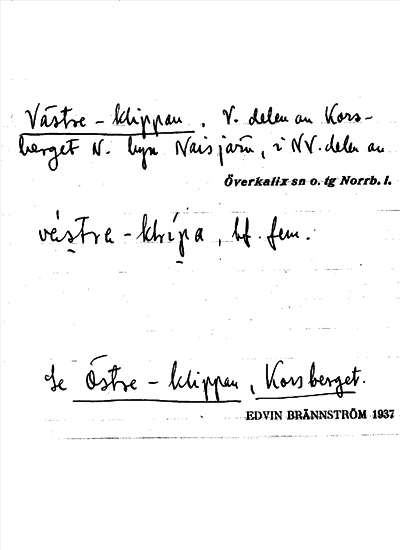 Västre-klippan. V. delen av Kors-
berget N. byn Naisjärv, i NV. delen av
Överkalix sn o. tg Norrb. l.
västra-klıpa, bf. fem.
Se Östre-klippan, Korsberget.
EDVIN BRÄNNSTRÖM 1937